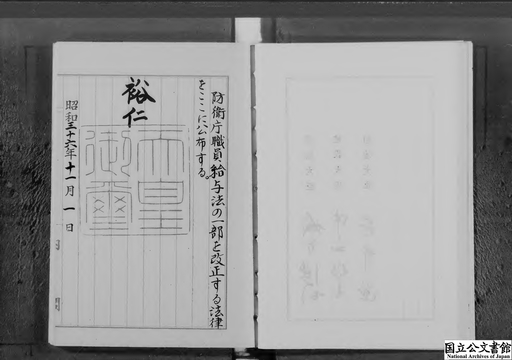 防衛庁職員給与法の一部を改正する法律
をここに公布する。
裕仁
天皇
御璽
昭和三十六年十一月一日
国立公文書館
National Archives of Japan